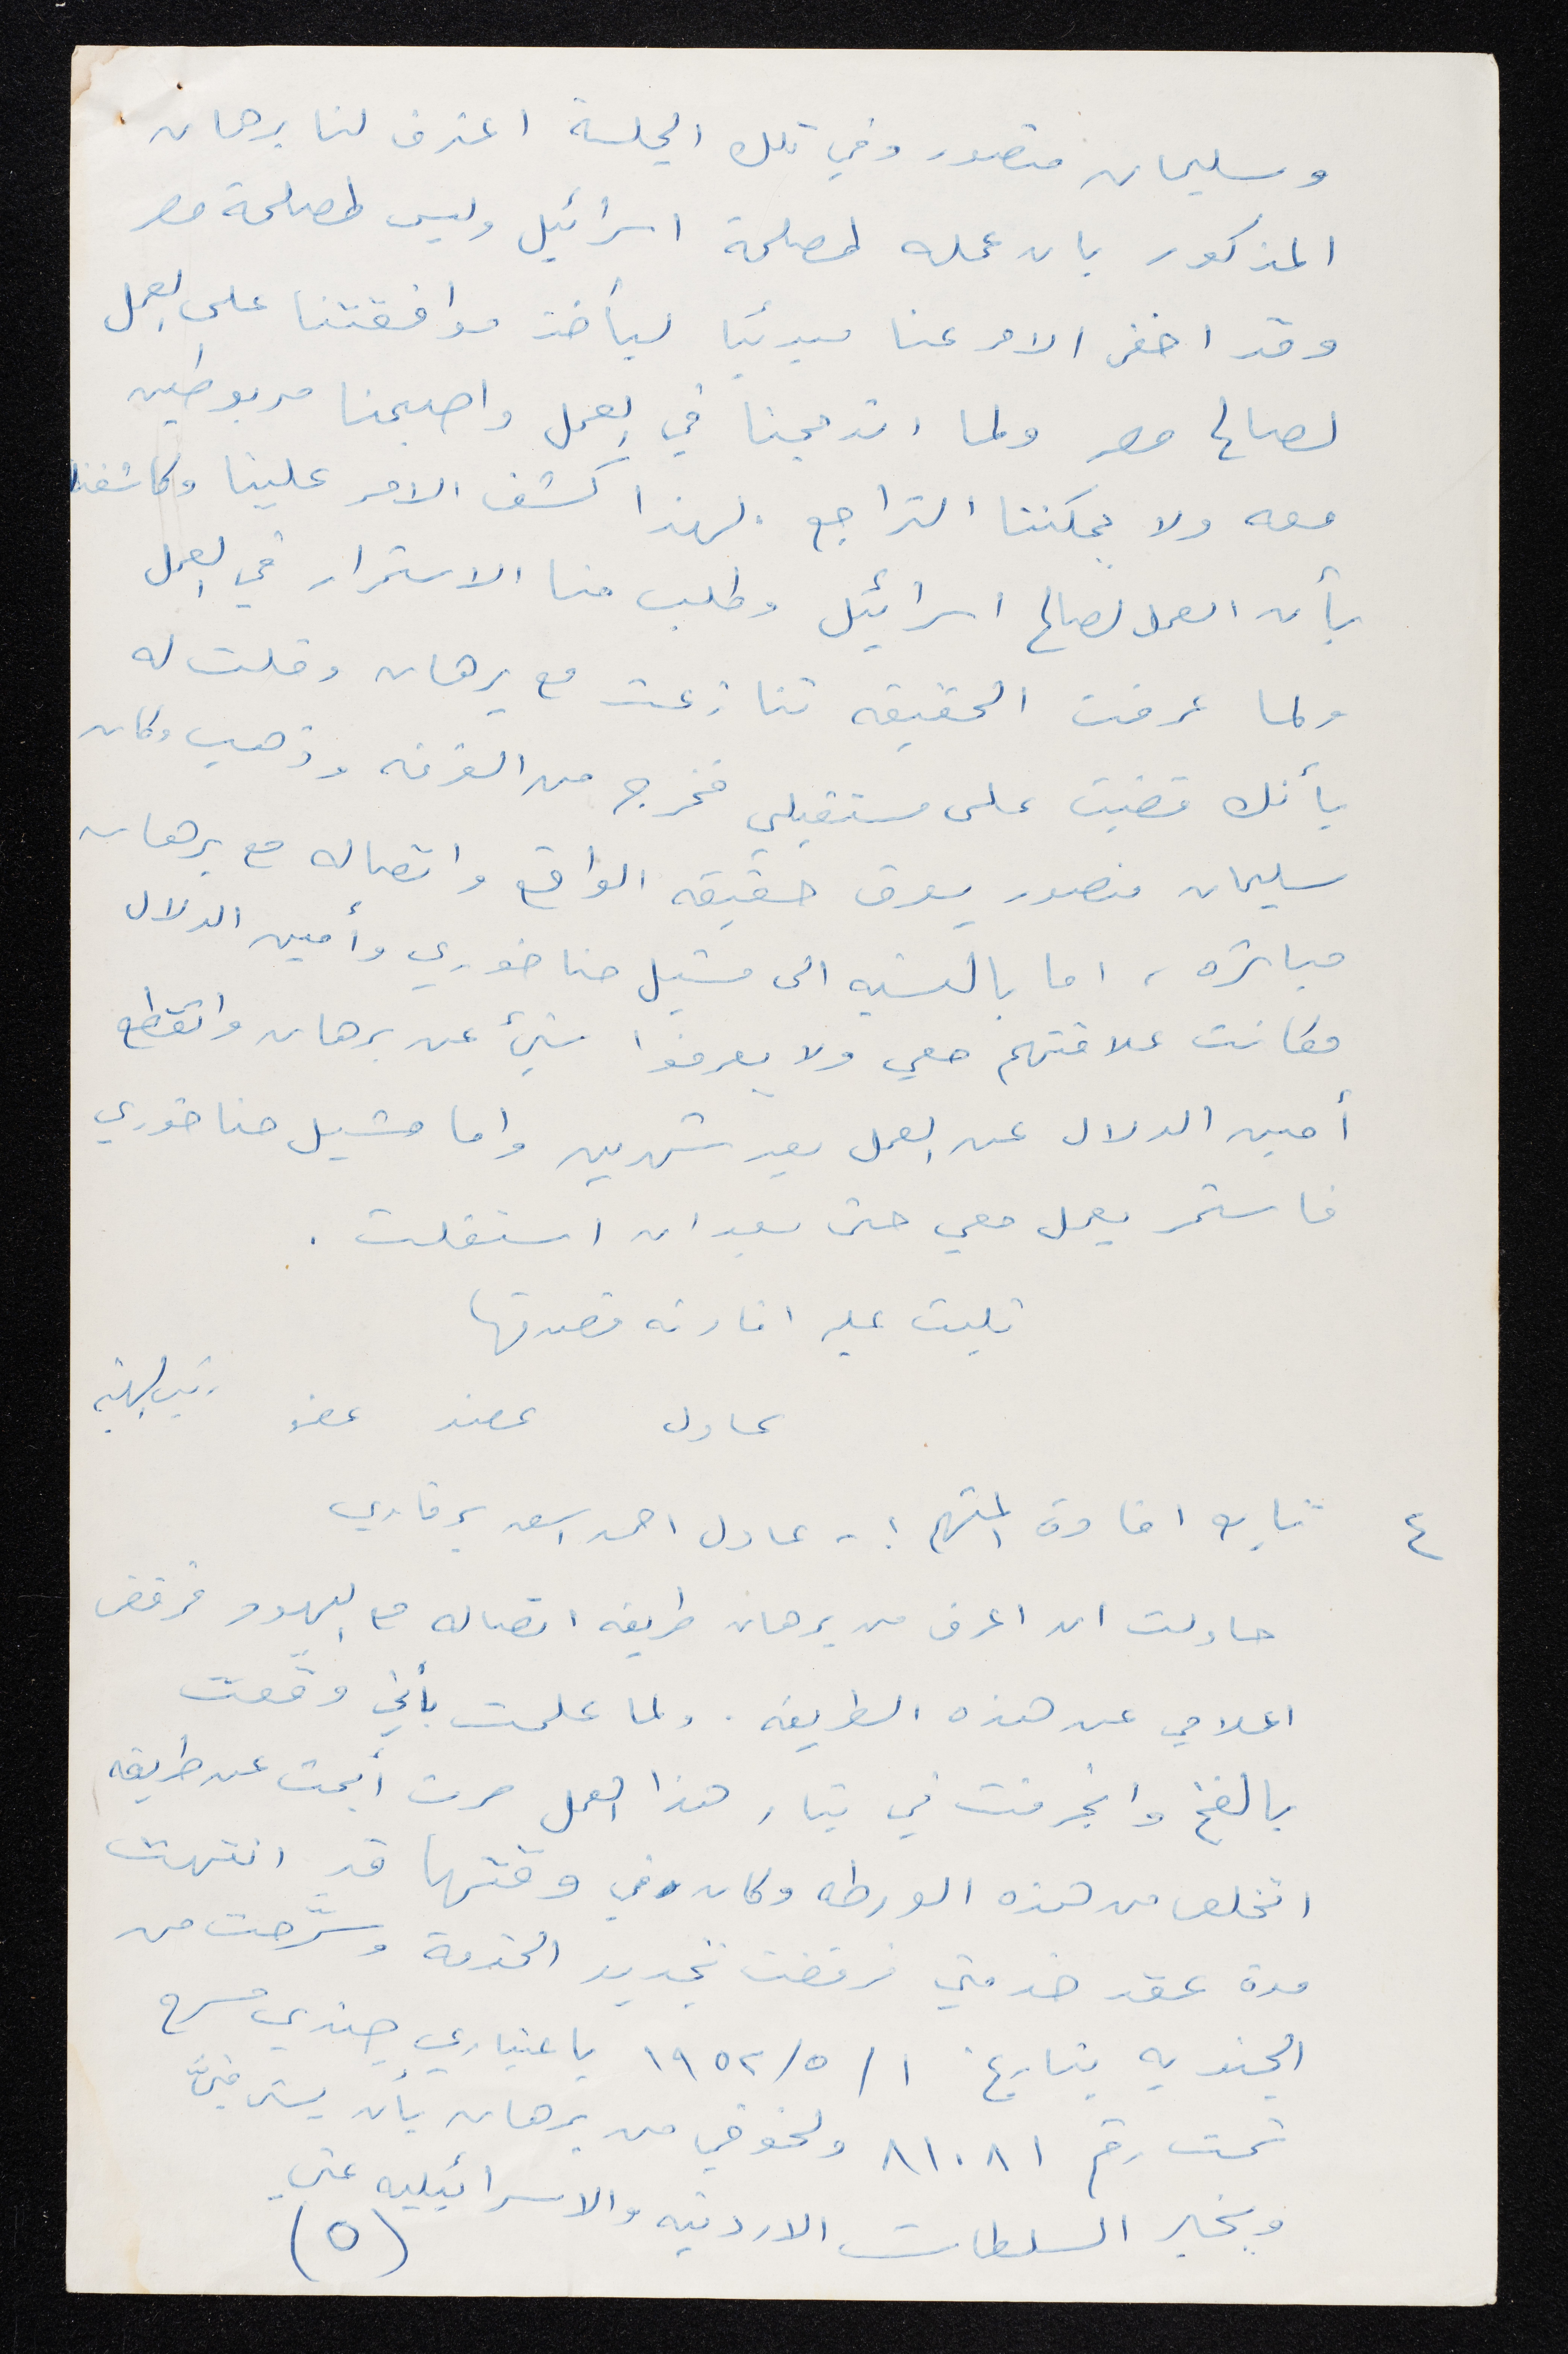 وسليمان منصور وفي تلك الجلسة اعترف لنا برهان
المذكور بان عمله لمصلحة اسرائيل وليس لمصلحة مصر
وقد اخفى الامر عنا مبدئيا ليأخذ موافقتنا على العمل
لصالح مصر ولما اندمجنا في العمل واصبحنا مربوطين
معه ولا يمكننا التراجع . لهذا كشف الامر علينا وكاشفنا
بأن العمل لصالح اسرائيل وطلب منا الاستمرار في العمل
ولما عرفت الحقيقه تنازعت مع برهان وقلت له
بأنك قضيت على مستقبلي فخرج من الغرفه وذهب وكان
سليمان منصور يعرف حقيقه الواقع واتصاله مع برهان
مباشره ، اما بالنسبه الى مشيل حنا خوري وأمين الدلال
فكانت علاقتهم معي ولا يعرفوا شيئ عن برهان وانقطع
أمين الدلال عن العمل بعد شهرين واما مشيل حنا خوري
فاستمر يعمل معي حتى بعد ان استقلت .
تليت عليه افادته فصدقها
عادل عضو عضو رئيس الهيئة
٤ تابع افادة المتهم :- عادل احمد اسعد برقاوي
حاولت ان اعرف من برهان طريقه اتصاله مع اليهود فرفض
اعلامي عن هذه الطريقه . ولما علمت بأني وقعت
بالفخ وانجرفت في تيار هذا العمل صرت أبحث عن طريقه
اتخلص من هذه الورطه وكان في وقتها قد انتهت
مدة عقد خدمتي فرفضت تجديد الخدمة وسُرّحت من
الجنديه بتاريخ ١/٥/١٩٥٢ باعتباري جندي مسرح
تحت رقم ٨١٠٨١ ولخوفي من برهان بأن يشي فيَّ
ويخبر السلطات الاردنيه والاسرائيليه عني
(٥)